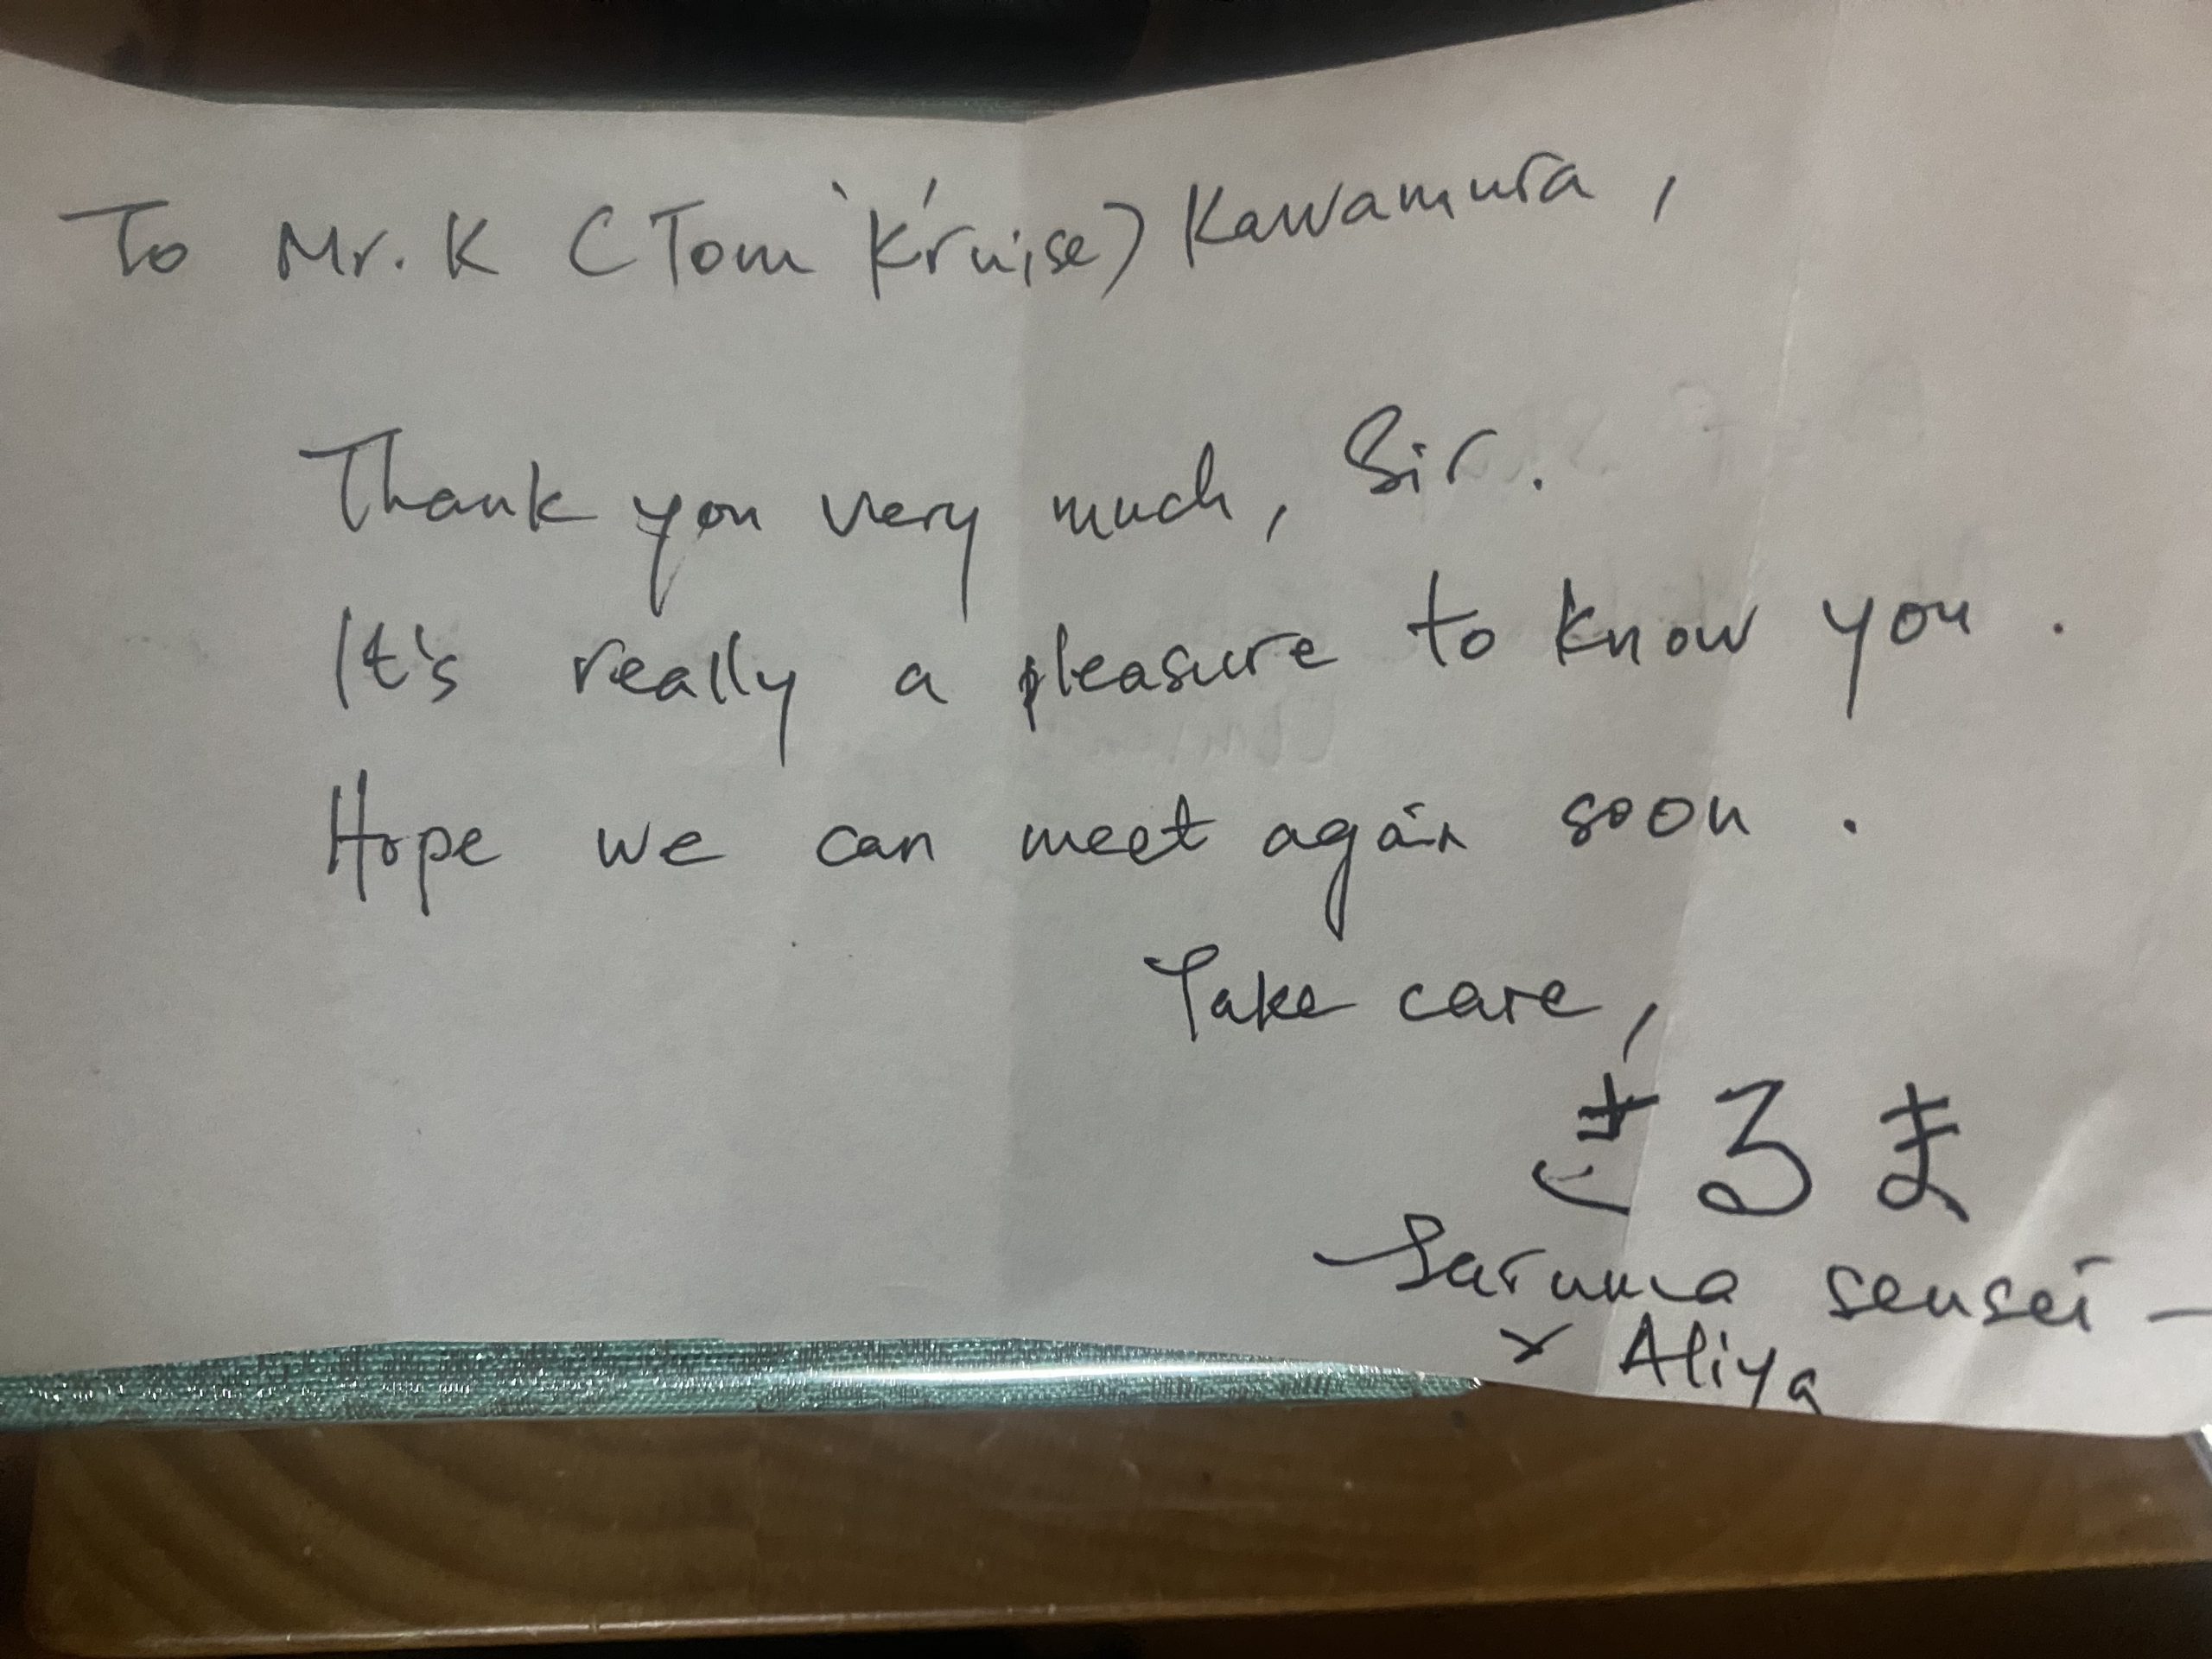 To Mr. K (Tom 'K'ruise) Kawamura,
Thank you very much, Sir.
It's really a pleasure to know you.
Hope we can meet again soon.
Take care,
さるま
Saruma sensei -
Aliya